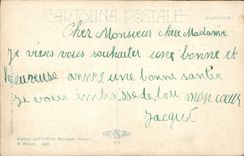 CARTOLINA POSTALE
Cher Monsieur chere Madame
je viens vous souhaiter une bonne et
heureuse annes une bonne santé
je vous embrasse de tou mon cœur
Jacqué